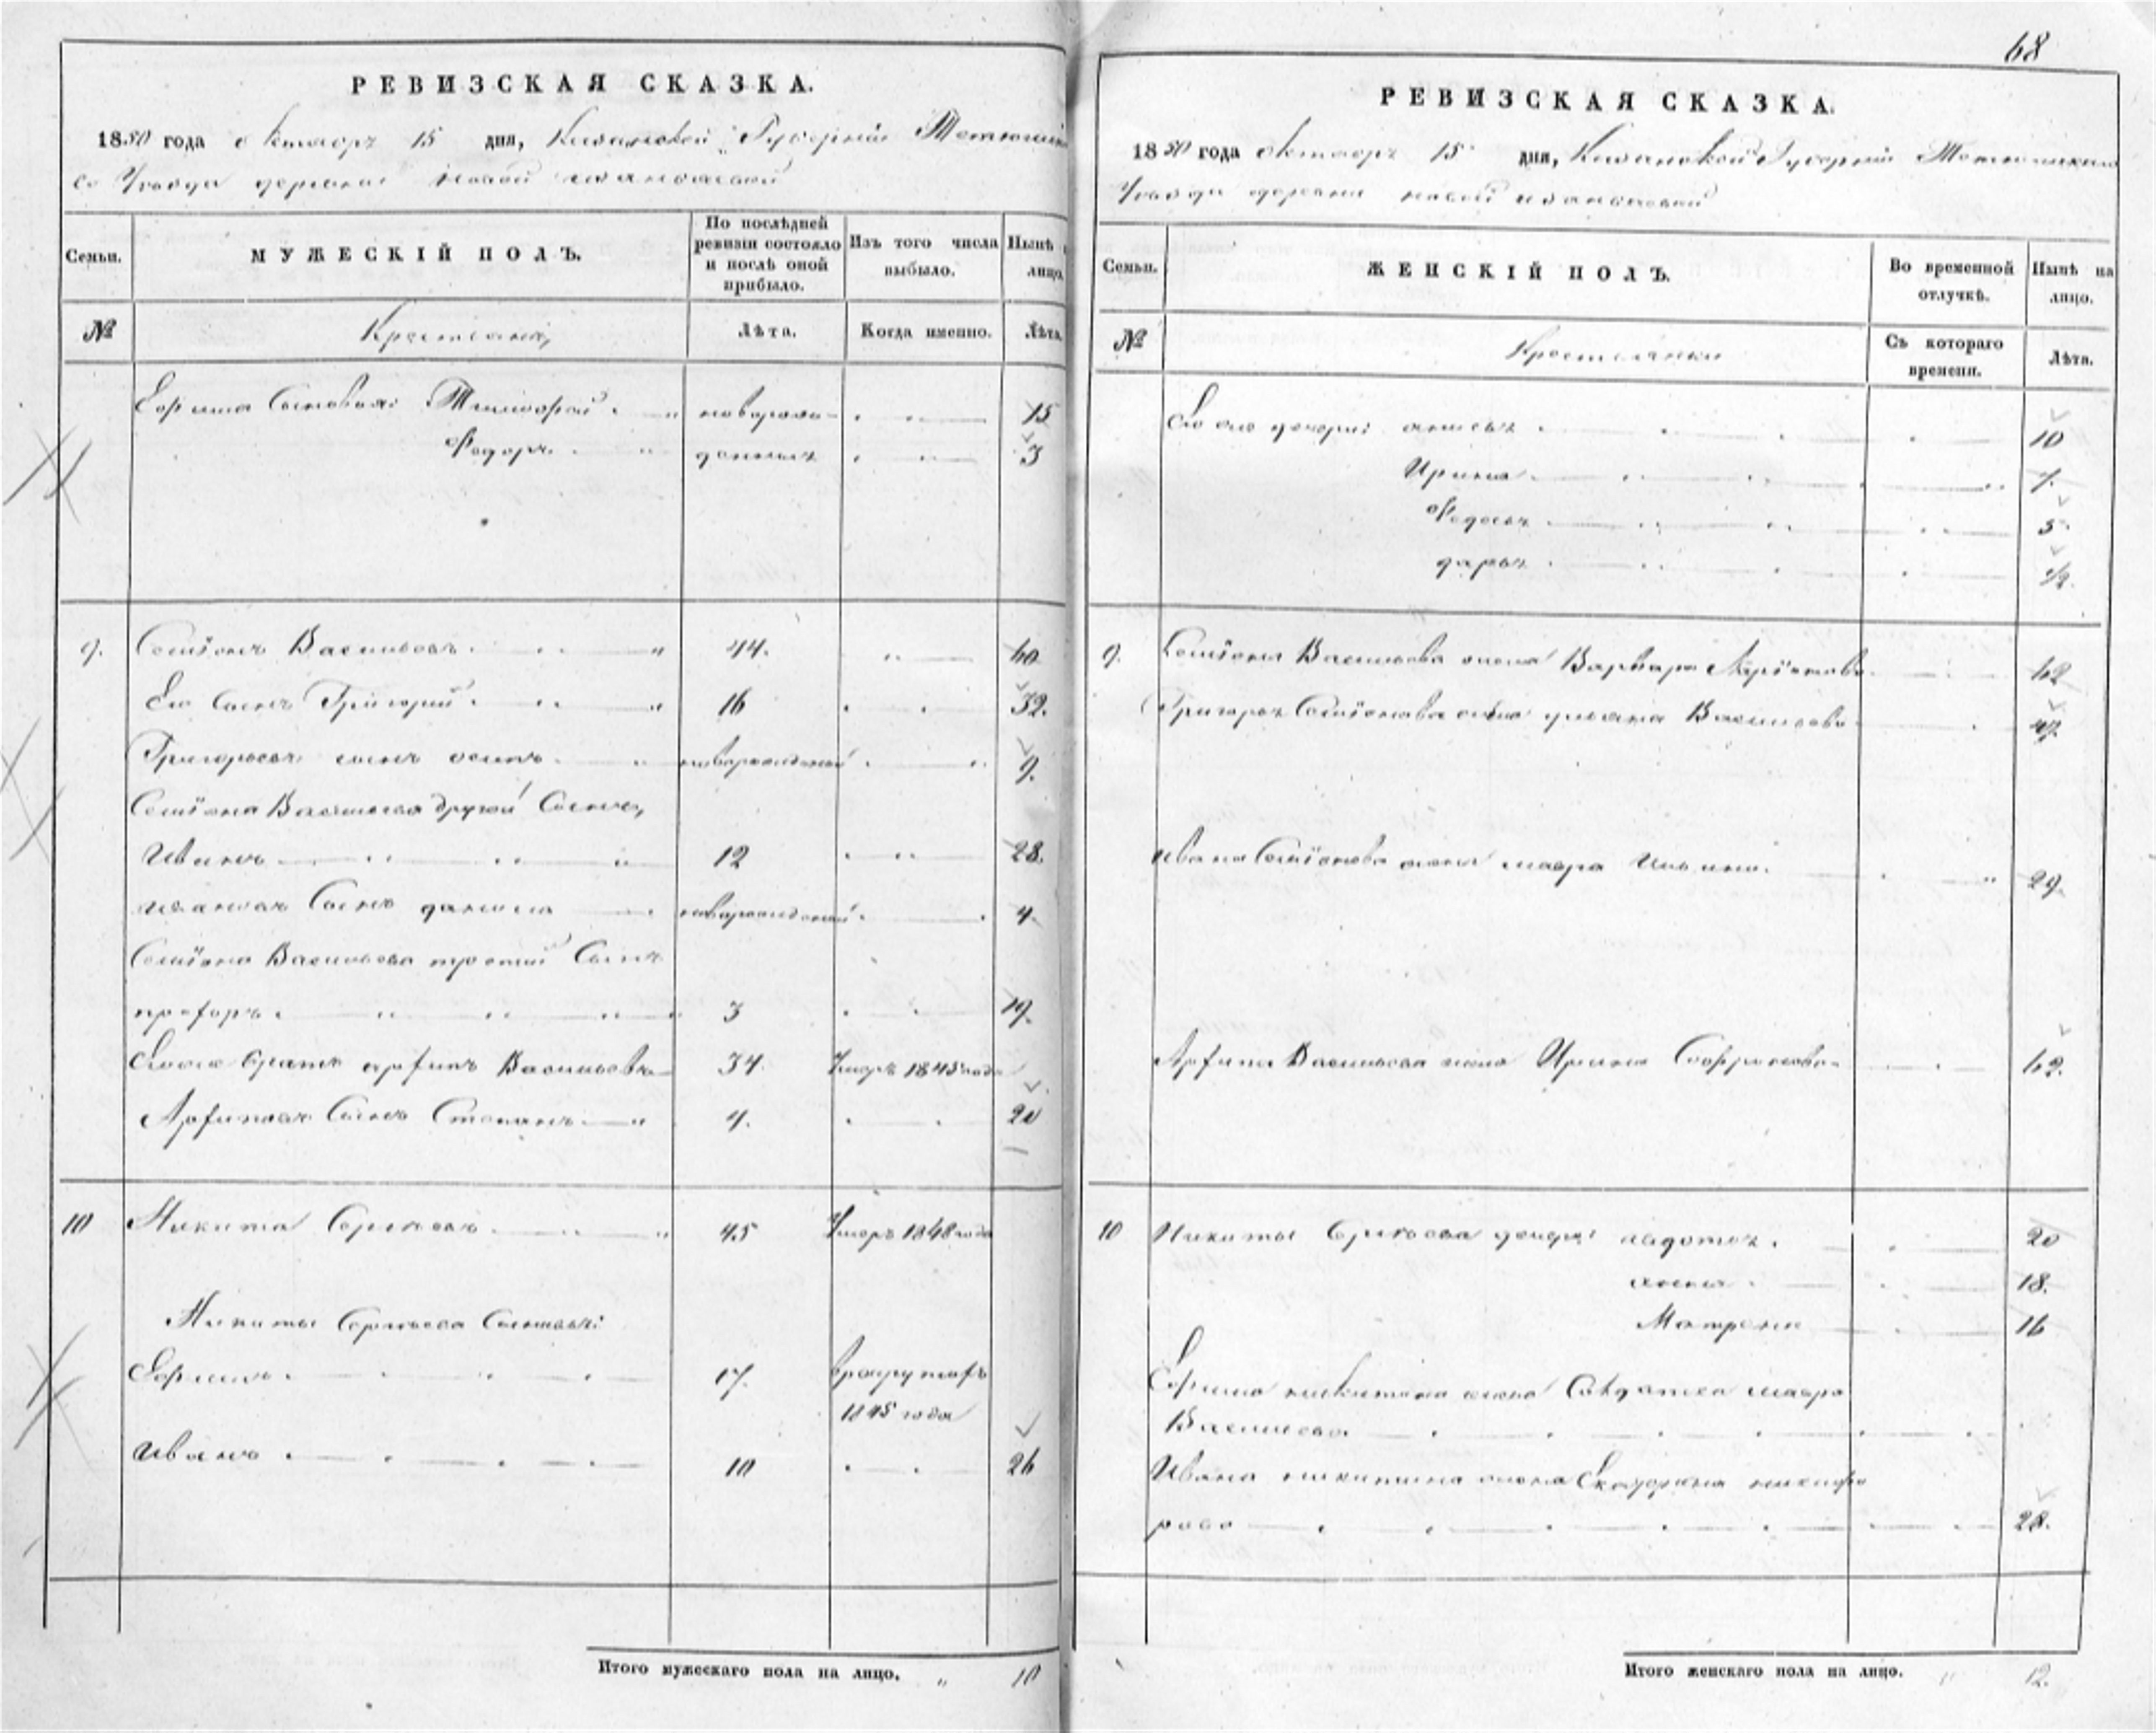 68
РЕВИЗСКАЯ СКАЗКА.
1850 года октября 15 дня, Казанской Губернии Тетюшска
го Уезда деревни Новой
Семьи.
МУЖЕСКІЙ ПОЛЪ.
По послѣдней ревизіи состояло и послѣ оной прибыло.
Изъ того числа выбыло.
Нынѣ на лицо.
№
Крестьяне,
Лѣта.
Когда именно.
Лѣта.
Ефима Сыновья: Тимофей новорож 15
Федоръ денныя 3
9. Семіонъ Васильевъ 44. 60
Его сынъ Григорий 16 32.
Григорьевъ сынъ осипъ новорожденный 9.
Семіона Васильева другой Сынъ,
Иванъ 12 28.
Ивановъ Сынъ данила новорожденный 4
Семіона Васильева третий Сынъ
3 19.
Его же братъ Васильевъ 34 Умеръ 1845 года
Сынъ Степанъ 4. 20
10 Никита Сергеевъ 45 Умеръ 1848 года
Никиты Сергеева Сыновья:
Ефимъ 17. в рекрутахъ
1845 года
Иванъ 10 26
Итого мужескаго пола на лицо. 10
РЕВИЗСКАЯ СКАЗКА.
1850 года октября 15 дня, Казанской Губернии Тетюшскаго
Уезда деревни новой
Семьи.
ЖЕНСКІЙ ПОЛЪ.
Во временной отлучкѣ.
Нынѣ на лицо.
№
Крестьянки
Съ котораго времени.
Лѣта.
Его же дочери: анисья 10
Ирина 7.
Федосья 5.
дарья 1/2.
9. Семіона Васильева жена Варвара 62
Григорья Семіонова жена ульяна Васильева
Ивана Семіонова жена мавра Ильина. 29.
Васильева жена Ирина Софронова 62.
10 Никиты Сергеева дочери авдотья. 20
анна 18.
Матрена 16
Ефима никитина жена Солдатка мавра
Васильева
Ивана никитина жена Екатерина никифо
рова 28.
Итого женскаго пола на лицо. 12.